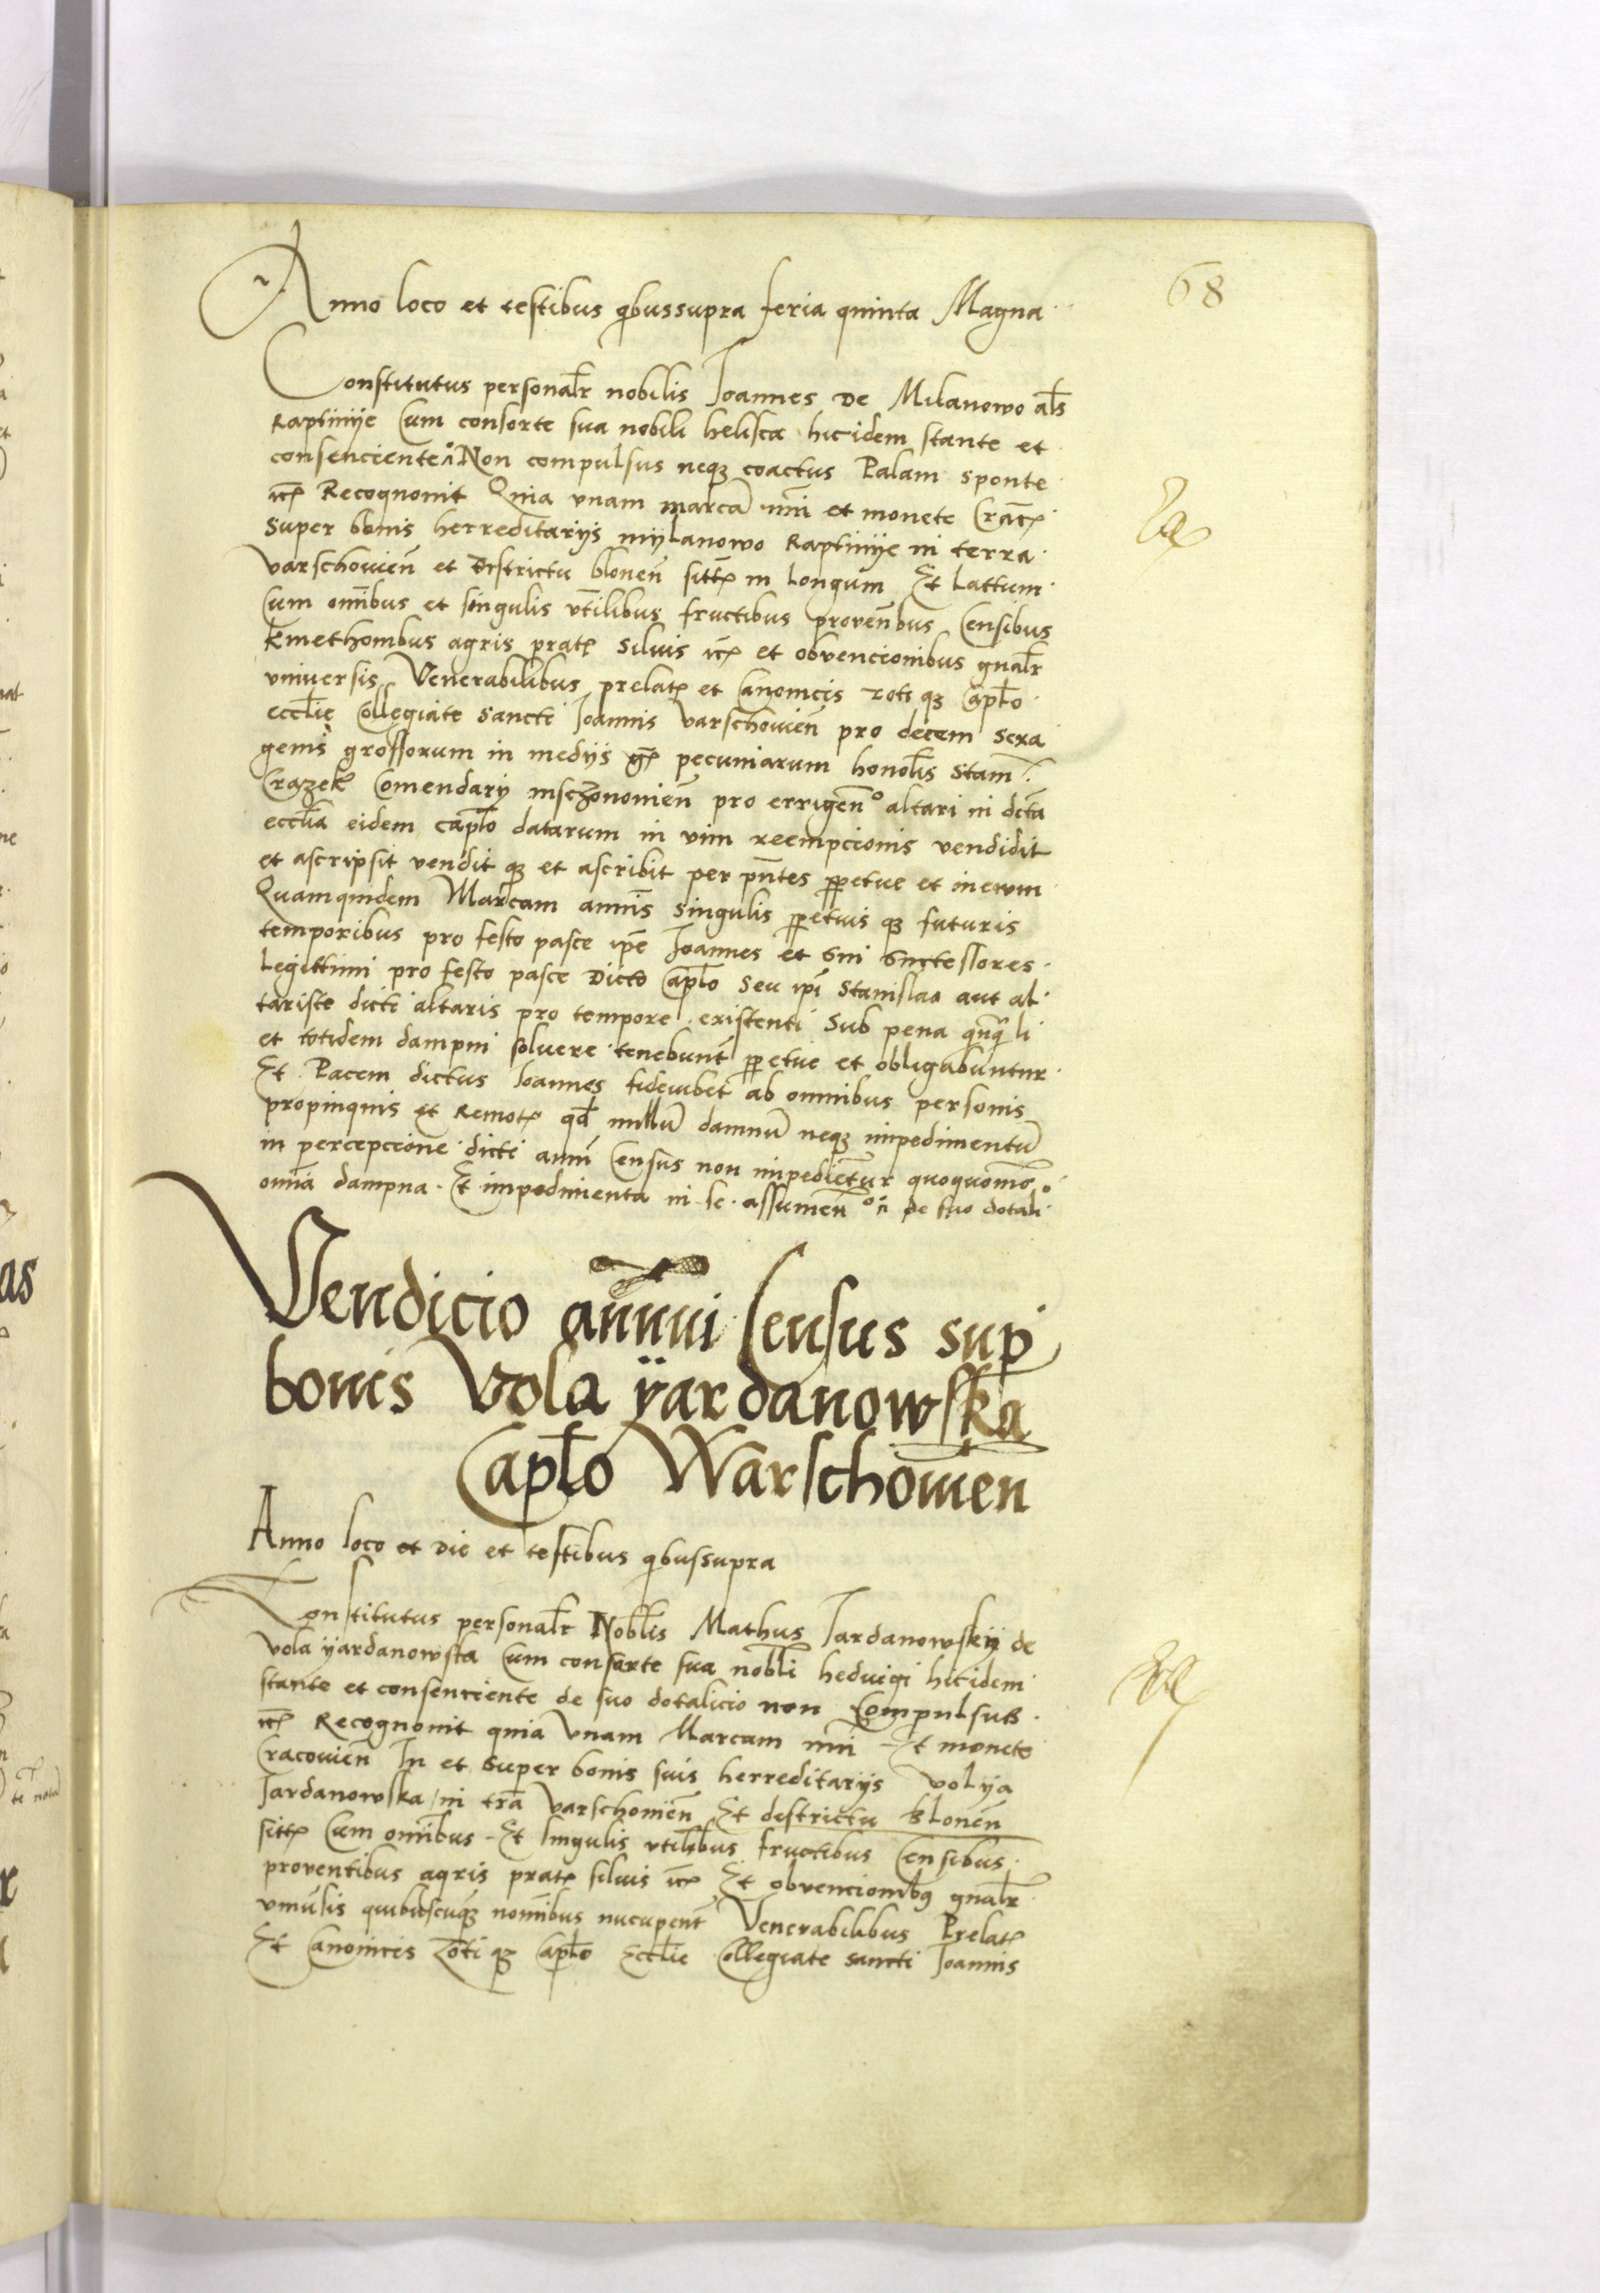 68
Anno loco et testibus qbussupra feria quinta Magna
Constitutus personalr nobilis Joannes de Milanowo als
Raptinije Cum consorte sua nobili helisca hicidem stante et
consenciente Non compulsus neqз coactus Palam sponte
Recognovit Quia vnam marcā et monete
super bonis herreditarijs mijlanowo Raptiniје in terra
varschovien̄ et Districtu blonen̄ in longum Et lattum
Cum om̄ibus et singulis vt̄ilibus fructibus proven̄bus Censibus
kmethonibus agris silvis et obvencionibus gnalr
vniversis Venerabilibus et Canonicis qз Capl̄o
eccl̄ie Collegiate sancti Joannis varschovien̄ pro decem sexa
genis grossorum in medijs pecuniarum honol̄is Stani
Crazek Comendarij pro errigen̄º altari in dcta
eccl̄ia eidem capl̄o datarum in vim reempcionis vendidit
et ascripsit vendit qз et ascribit per pn̄tes ppetue et in ewm
Quamquidem Marcam annis singulis ppetuis qз futuris
temporibus pro festo pasce ip̄e Joannes et sui successores
legittimi pro festo pasce Dicto Capl̄o seu ip̄i Stanislao aut al
tariste dicti altaris pro tempore existenti Sub pena
et totidem dampni solvere tenebunt̄ ppetue et obligabuntur
Et Pacem dictus Joannes fideiubet ab omnibus personis
propinquis et nullū damnū neqз impedimentū
in percepcione dicti anni Census non impedietur quoquomō
omnia dampna Et impedimenta in se assumen̄º de suo dotali
Vendicio annui Census sup
bonis Vola ÿardanowska
Capl̄o Warschovien
Anno loco et Die et testibus qbussupra
Constitutus personalr Nobl̄is Mathus Jardanowskij de
Vola ÿardanowska Cum consorte sua nobl̄i hedvigi hicidem
stante et consenciente de suo dotalicio non Compulsus
Recognovit quia Vnam Marcam Et monete
Cracovien̄ In et super bonis suis herreditarijs volÿa
Jardanowska in trā varschovien̄ Et destrictu blonen̄
Cum om̄ibus Et singulis vtilibus fructibus Censibus
proventibus agris silvis Et obvencionibз gnalr
quibuscuqз nomībus nucupent̄ Venerabilibus
Et Canonicis qз Capl̄o Eccl̄ie Collegiate sancti Joannis